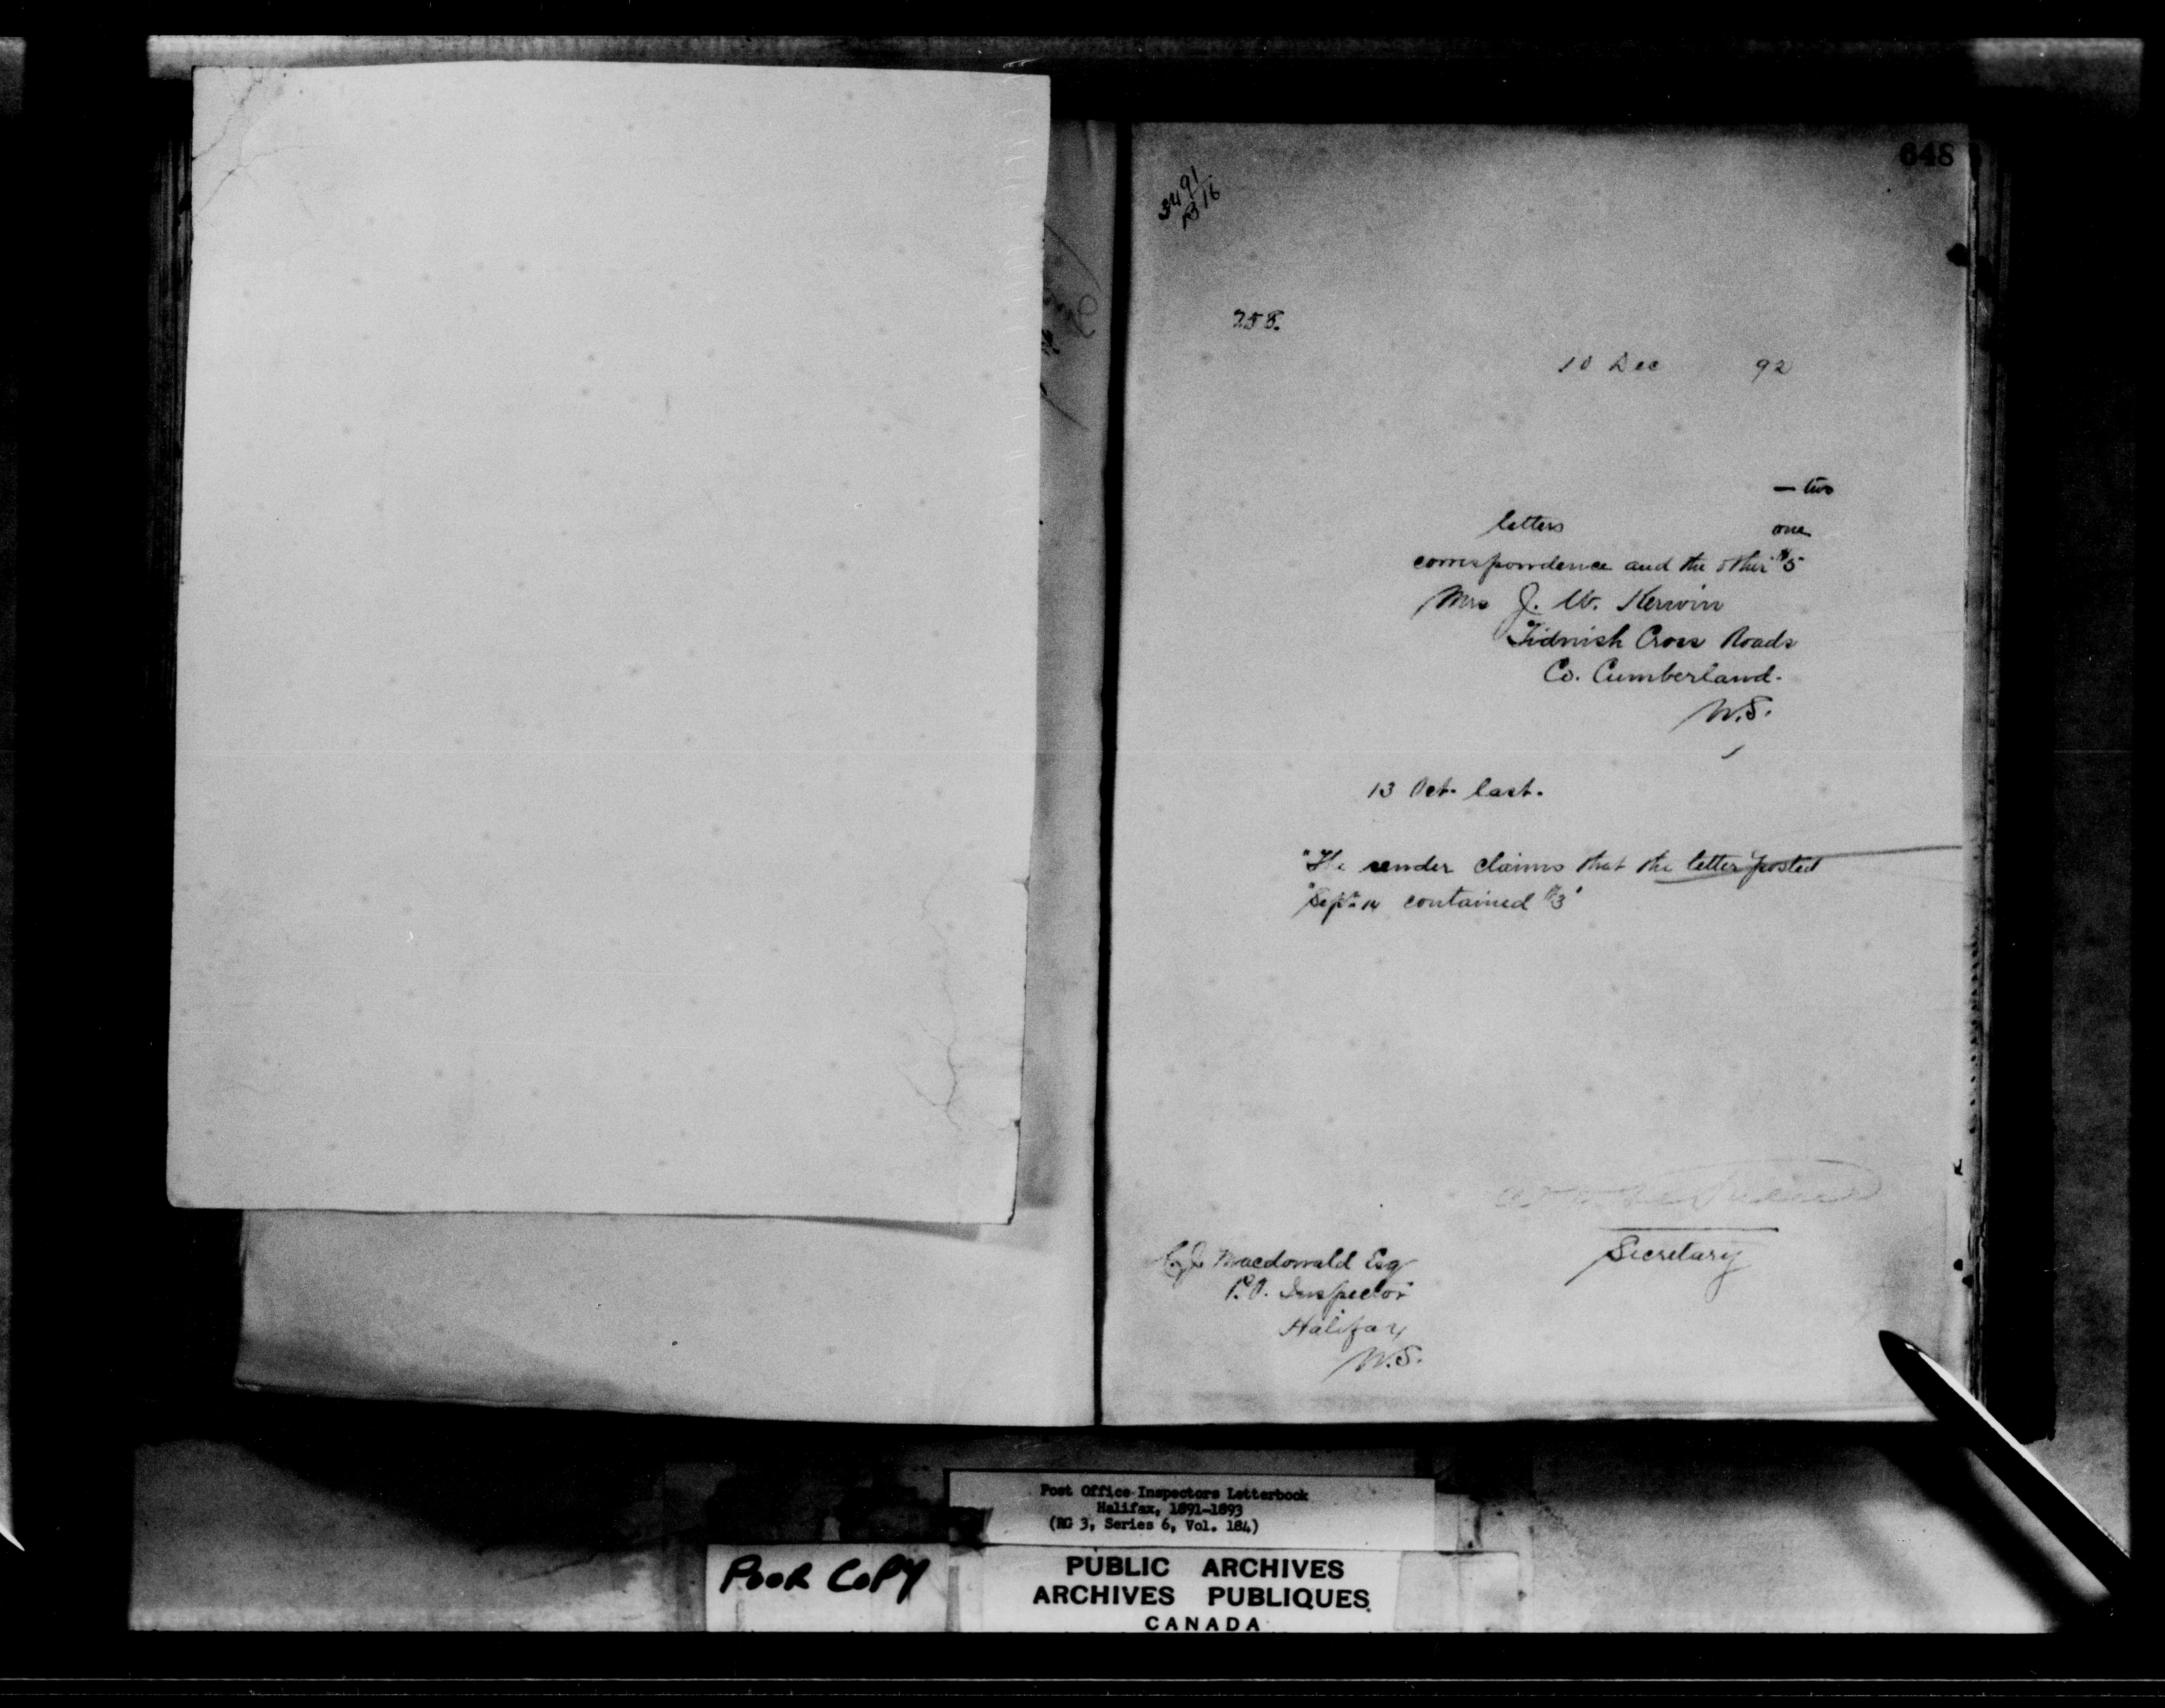 648
3491
B16
258.
10 Dec 92
— two
letters one
correspondence and the other $5
Mrs J. W. Kerwin
Tidnish Cross Roads
Co. Cumberland.
N.S.
13 Oct. last.
"The sender claims that the letter posted
"Sept. 14 contained $3"
Secretary
C.J. Macdonald Esq
P.O. Inspector
Halifax
N.S.
Post Office Inspectors Letterbook
Halifax, 1891-1893
(RG 3, Series 6, Vol. 184)
POOR COPY
PUBLIC ARCHIVES
ARCHIVES PUBLIQUES
CANADA